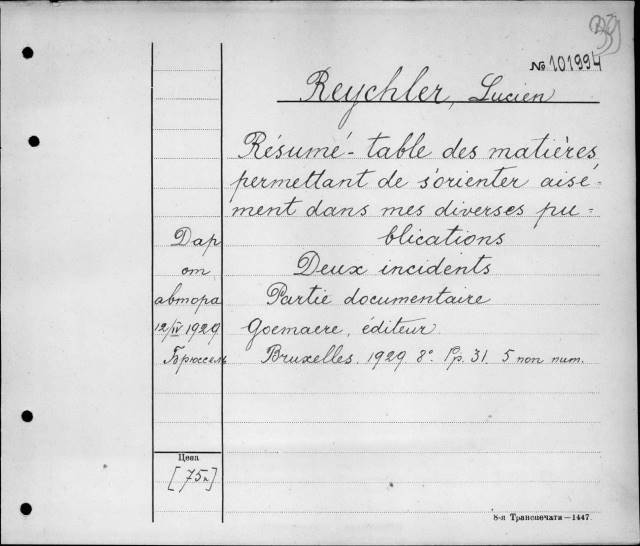 № 101994
Reychler, Lucien
Résumé - table des matières
permettant de s'orienter aisé=
ment dans mes diverses pu=
blications
Deux incidents
Partie documentaire
Goemaere, éditeur.
Bruxelles. 1929. 8°. Pp. 31. 5 non num.
Дар
от
автора
12/IV 1929
Брюссель
Цена
[75к]
8-я Транспечати—1447.